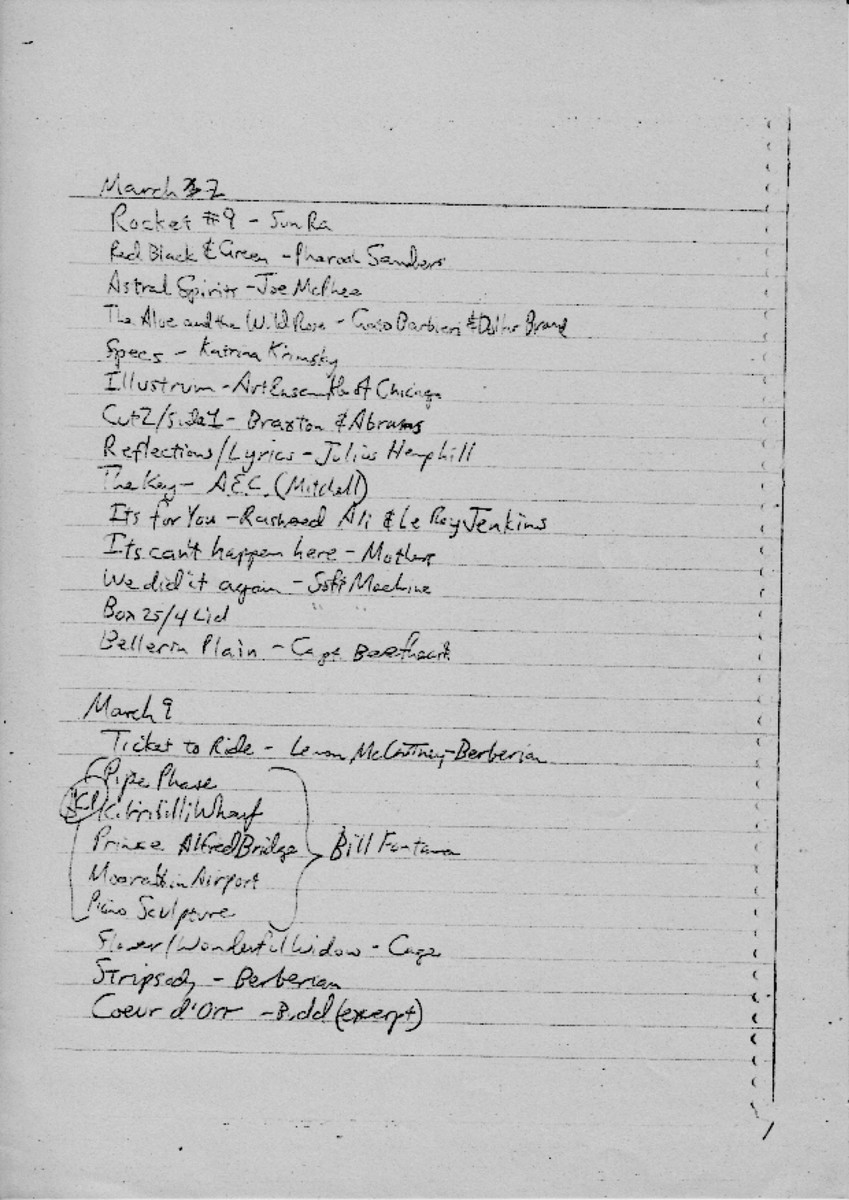 March 7
Rocket #9 - Sun Ra
Red Black & Green - Pharoah Sanders
Astral Spirits - Joe McPhee
The Aloe and the Wild Rose - Gato Barbieri & Dollar Brand
Specs - Katrina Krimsky
Illustrum - Art Ensemble of Chicago
Cut 2/Side 1 - Braxton & Abrams
Reflections/Lyrics - Julius Hemphill
The Key - A.E.C. (Mitchell)
Its for You - Rasheed Ali & Le Roy Jenkins
Its can't happen here - Mothers
We did it again - Soft Machine
Box 25/4 Lid " "
Bellerin Plain - Capt Beefheart
March 9
Ticket to Ride - Lennon, McCartney-Berberian
Pipe Phase
Kiribilli Wharf
Prince Alfred Bridge Bill Fontana
Moorabbin Airport
Piano Sculpture
Flower/Wonderful Widow - Cage
Stripsody - Berberian
Coeur d'Orr - Budd (exerpt)